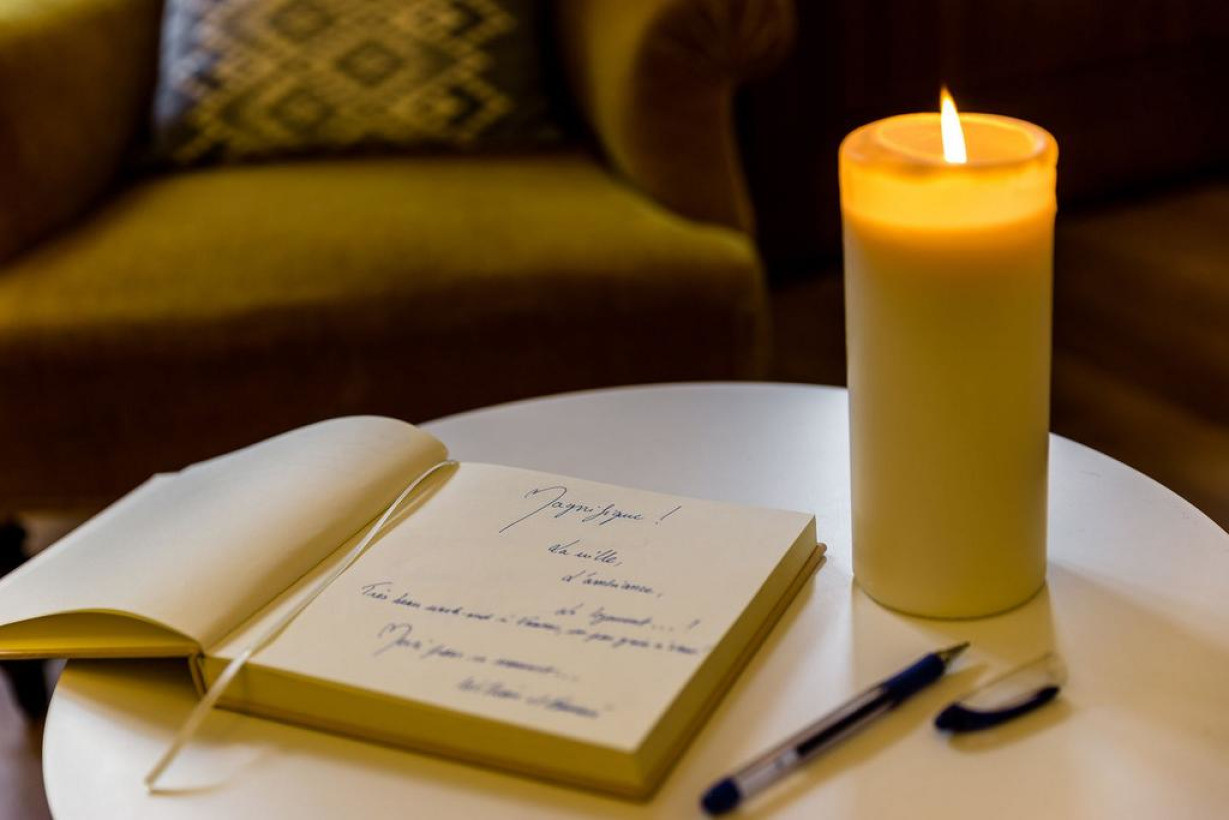 Magnifique !
La ville,
L'ambiance,
Le logement .... !
Très beau week-end à
Merci pour ce moment...